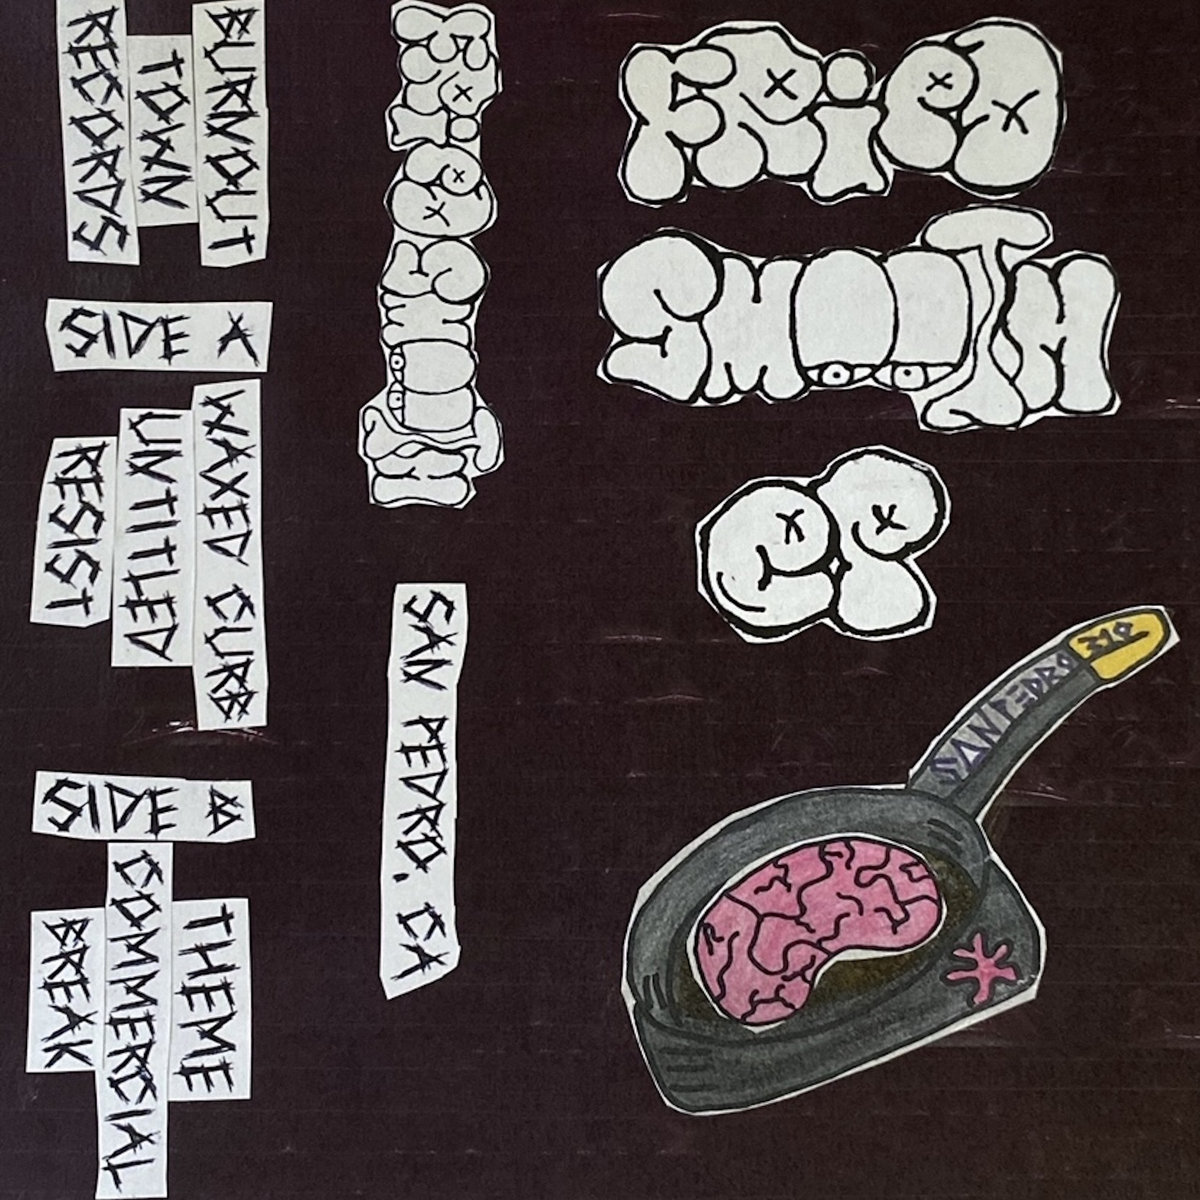 FRiED
SMOOTH
EP
SAN PEDRO 310
FRiED SMOOTH
SAN PEDRO, CA
BURNOUT
TOWN
RECORDS
SIDE A
WAXED CURB
UNTITLED
RESIST
SIDE B
THEME
COMMERCIAL
BREAK